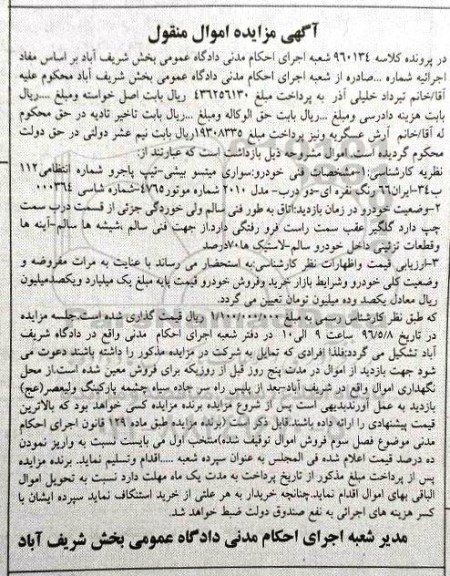 آگهی مزایده اموال منقول
در پرونده کلاسه ۹۶۰۱۳۴ شعبه اجرای احکام مدنی دادگاه عمومی بخش شریف آباد بر اساس مفاد
اجرائیه شماره ...صادره از شعبه اجرای احکام مدنی دادگاه عمومی بخش شریف آباد محکوم علیه
آقا/خانم تیرداد خلیلی آذر به پرداخت مبلغ ۴۳۶۲۵۶۱۳۰ ریال بابت اصل خواسته ومبلغ ....ریال
بابت هزینه دادرسی ومبلغ ...ریال بابت حق الوکاله ومبلغ... ریال بابت تاخیر تادیه در حق محکوم
له آقا/خانم آرش عسگریه ونیز پرداخت مبلغ ۱۹۳۰۸۳۳۵ریال بابت نیم عشر دولتی در حق دولت
محکوم گردیده است. اموال مشروحه ذیل بازداشت است که عبارتند از:
نظریه کارشناسی:۱-مشخصات فنی خودرو:سواری میتسو بیشی-تیپ پاجرو شماره انتظامی۱۱۲
ب۳۴-ایران۶۶ رنگ نقره ای-دو درب- مدل ۲۰۱۰ شماره موتور ۴۷۶۵-شماره شاسی ۰۰۰۳۶۴
۲-وضعیت خودرو در زمان بازدید:اتاق به طور فنی سالم ولی خوردگی جزئی از قسمت درب سمت
چپ دارد گلگیر عقب سمت راست فرو رفتگی دارداز جهت فنی سالم ،شیشه ها سالم-آینه ها
وقطعات تزئینی داخل خودرو سالم-لاستیک ها۷۰درصد
۳-ارزیابی قیمت واظهارات نظر کارشناسی:به استحضار می رساند با عنایت به مرات مفروضه و
وضعیت کلی خودرو وشرایط بازار خرید وفروش خودرو قیمت پایه مبلغ یک میلیارد ویکصدمیلیون
ریال معادل یکصد وده میلیون تومان تعیین می گردد.
که طبق نظر کارشناس رسمی به مبلغ ۱/۱۰۰/۰۰۰/۰۰۰ ریال قیمت گذاری شده است.جلسه مزایده
در تاریخ ۹۶/۵/۸ ساعت ۹ الی۱۰ در دفتر شعبه اجرای احکام مدنی واقع در دادگاه شریف
آباد تشکیل می گردد:فلذا افرادی که تمایل به شرکت در مزایده مذکور را داشته باشند دعوت می
شود جهت بازدید از اموال در مدت پنج روز قبل از روزیکه برای فروش معین شده است،از محل
نگهداری اموال واقع در شریف آباد-بعد از پلیس راه سر جاده سیاه چشمه پارکینگ ولیعصر(عج)
بازدید به عمل آورندبدیهی است پس از شروع مزایده برنده مزایده کسی خواهد بود که بالاترین
قیمت پیشنهادی را ارائه داده باشد.قابل ذکر است (برنده مزایده طبق ماده ۱۲۹ قانون اجرای احکام
مدنی موضوع فصل سوم فروش اموال توقیف شده)منتخب اول می بایست نسبت به واریز نمودن
ده درصد قیمت اعلام شده فی المجلس به عنوان سپرده شعبه .....اقدام وتسلیم نماید. برنده مزایده
پس از پرداخت مبلغ مذکور از تاریخ پرداخت به مدت یک ماه مهلت دارد نسبت به تحویل اموال
الباقی بهای اموال اقدام نماید.چنانچه خریدار به هر علتی از خرید استنکاف نماید سپرده ایشان با
کسر هزینه های اجرائی به نفع صندوق دولت ضبط خواهد شد.
مدیر شعبه اجرای احکام مدنی دادگاه عمومی بخش شریف آباد